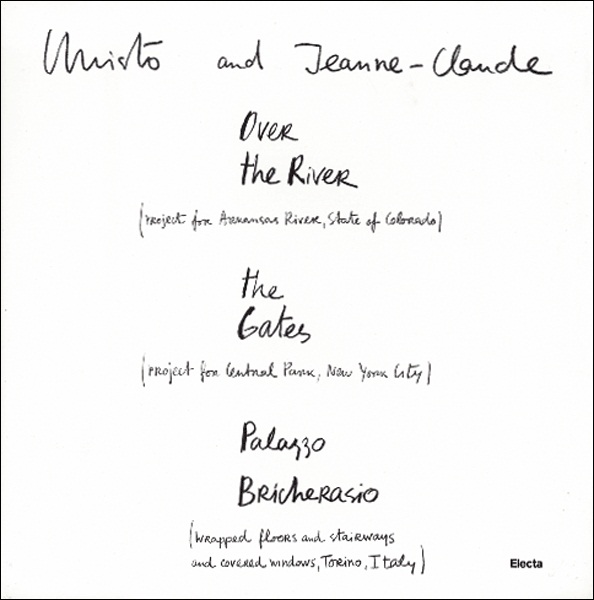 Christo and Jeanne-Claude
Over
the River
(Project for Arkansas River, State of Colorado)
the
Gates
(Project for Central Park, New York City)
Palazzo
Bricherasio
(wrapped floors and stairways
and covered windows, Torino, Italy)
Electa